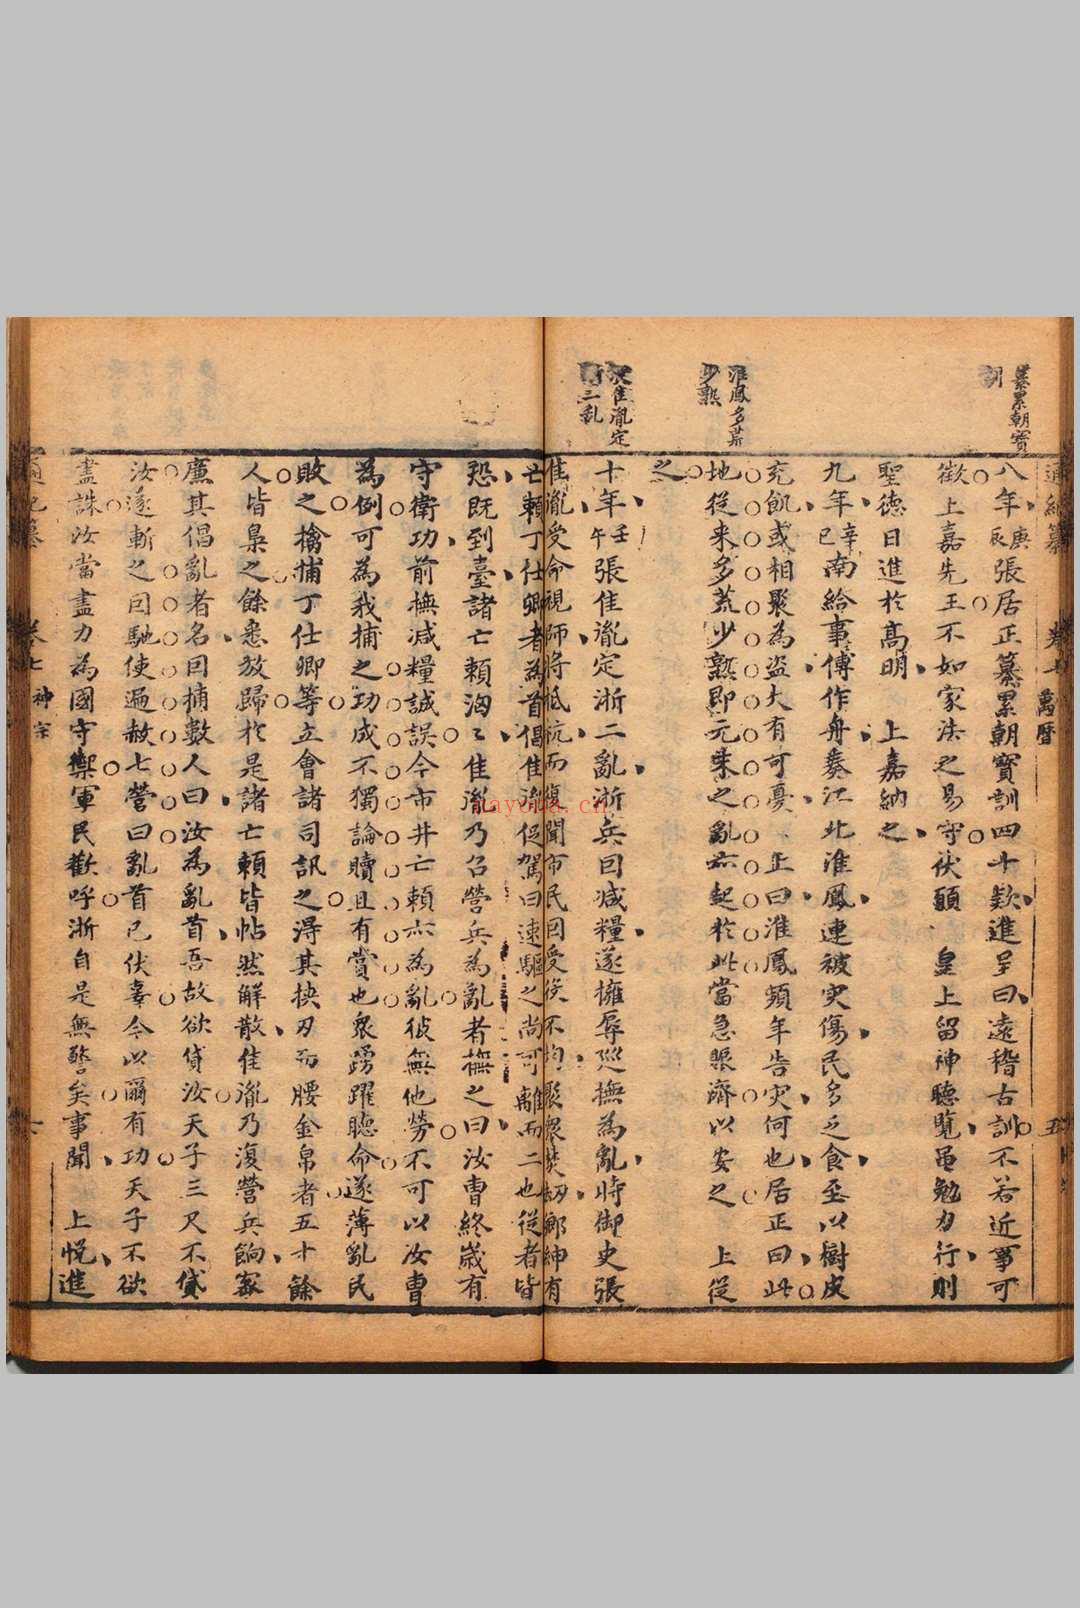 纂累朝寶
訓
淮鳳多荒
少熟
張佳胤定
二乱
通紀纂 卷七 萬曆 五
八年庚辰張居正纂累朝寶訓四十欵進呈曰遠稽古訓不若近事可
徵上嘉先王不如家法之易守伏願 皇上留神聽覽黽勉力行則
聖德日進於高明 上嘉納之
九年辛巳南給事傅作舟奏江北淮鳳連被灾傷民多乏食至以樹皮
充飢或相聚為盗大有可憂 上曰淮鳳頻年告灾何也居正曰此
地從来多荒少熟即元末之亂亦起於此當急賑濟以安之 上從
之
十年壬午張佳胤定浙二亂浙兵因减糧遂擁辱巡撫為亂時御史張
佳胤受命視師將抵杭而復聞市民因受役不均聚衆焚刼鄉紳有
亡頼丁仕卿者為首倡佳胤促駕曰速驅之尚可離而二也從者皆
恐既到臺諸亡頼洶〻佳胤乃召營兵為亂者撫之曰汝曹終歲有
守衛功前撫减糧誠誤今市井亡頼亦為亂彼無他勞不可以汝曹
為例可為我捕之功成不獨論贖且有賞也衆踴躍聽命遂薄亂民
敗之擒捕丁仕卿等立會諸司訊之得其挟刃而腰金帛者五十餘
人皆梟之餘悉放歸於是諸亡頼皆帖然解散佳胤乃復營兵餉宻
廉其倡亂者名因捕數人曰汝為亂首吾故欲貸汝天子三尺不貸
汝遂斬之因馳使遍赦七營曰亂首已伏辜今以爾有功天子不欲
盡誅汝當盡力為國守禦軍民歡呼浙自是無警矣事聞 上悦進
通紀纂 卷七 神宗 六
nayona.cn